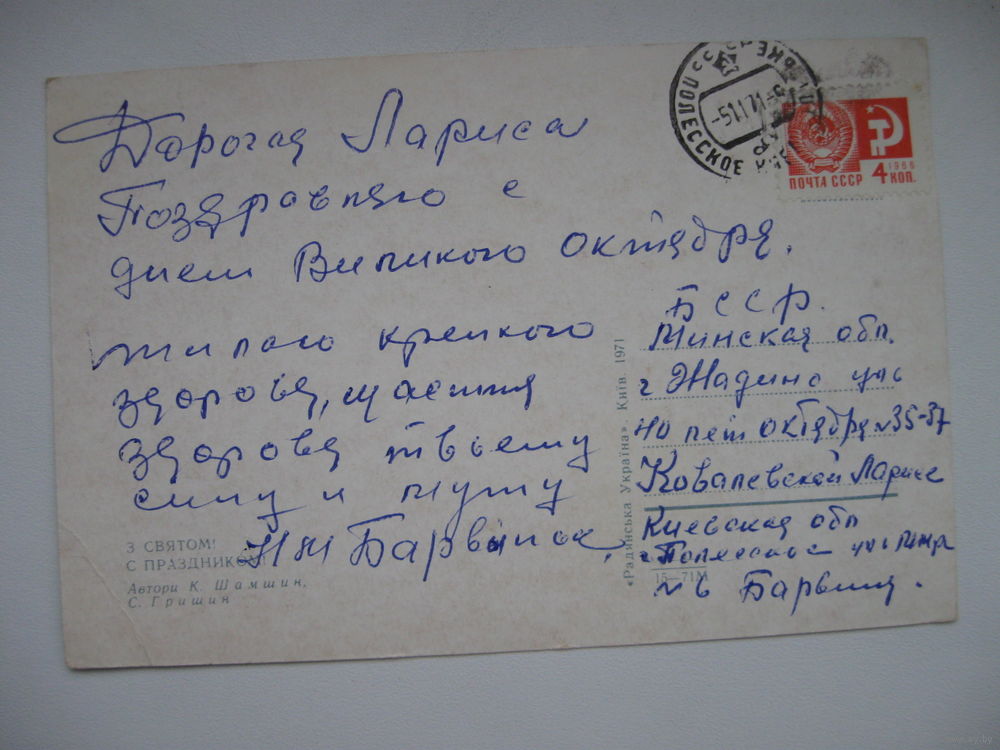 Дорогая Лариса
Поздравляю с
днем Великого октября.
Жилаю крепкого
здоровья, щастия
здоровя твьему
сину и мужу
Барвинск
З СВЯТОМ!
С ПРАЗДНИКОМ!
Автори К. Шамшин,
С. Гришин
«Радянська Україна». Київ. 1971
15—71М
СССР
ПОЛЕССКОЕ
-51171
ПОЧТА СССР
4 КОП.
1966
БССР.
Минская обл.
г Жадино ул
40 лет октября 35-37
Ковалевской Ларисе
Киевская обл
Полесское ул
Барвин